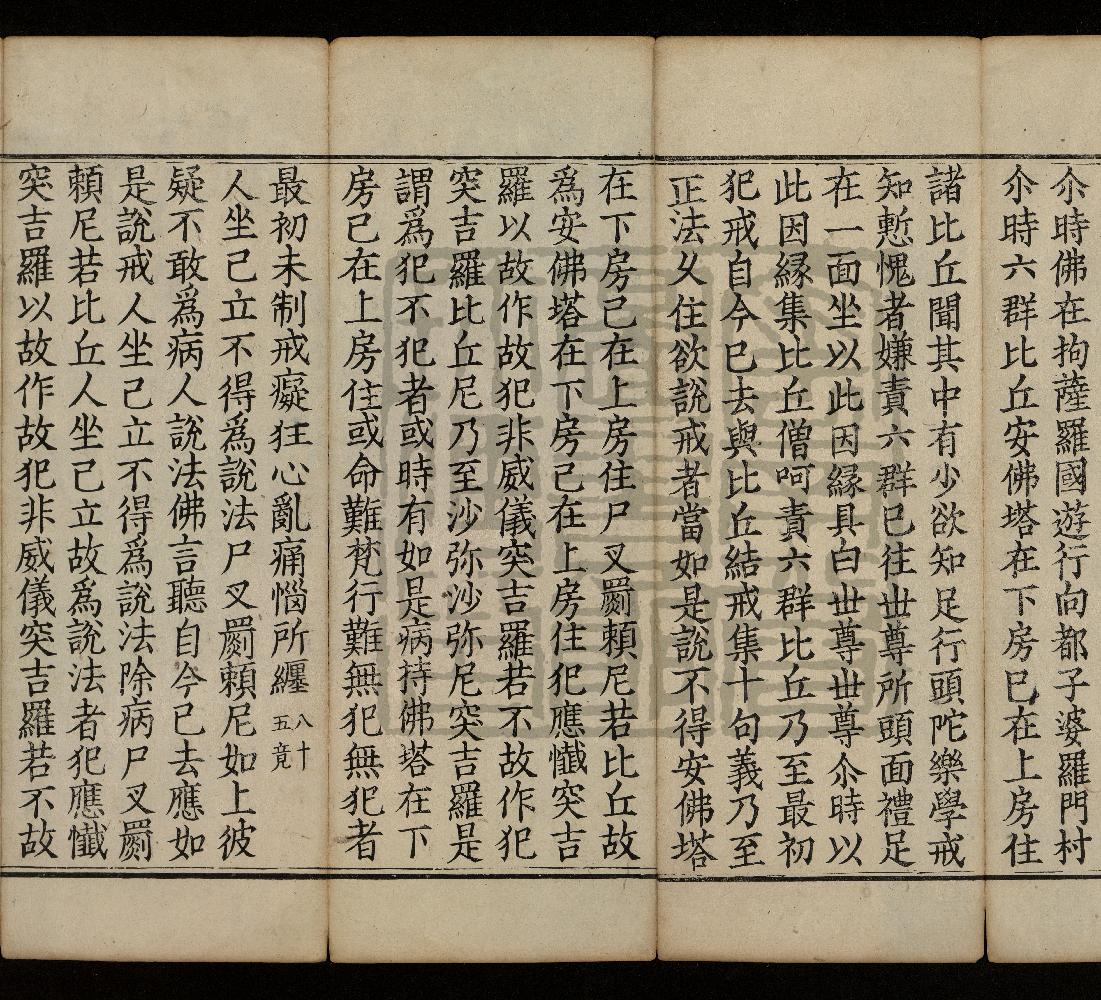 尒時佛在拘薩羅國遊行向都子婆羅門村
尒時六群比丘安佛塔在下房已在上房住
諸比丘聞其中有少欲知足行頭陀樂學戒
知慙愧者嫌責六群已往世尊所頭面禮足
在一面坐以此因緣具白世尊世尊尒時以
此因緣集比丘僧呵責六群比丘乃至最初
犯戒自今已去與比丘結戒集十句義乃至
正法久住欲說戒者當如是說不得安佛塔
在下房己在上房住尸叉罽賴尼若比丘故
爲安佛塔在下房己在上房住犯應懺突吉
羅以故作故犯非威儀突吉羅若不故作犯
突吉羅比丘尼乃至沙弥沙弥尼突吉羅是
謂爲犯不犯者或時有如是病持佛塔在下
房已在上房住或命難梵行難無犯無犯者
最初未制戒癡狂心亂痛惱所纏八十五竟
人坐己立不得爲說法尸叉罽賴尼如上彼
疑不敢爲病人說法佛言聽自今已去應如
是說戒人坐己立不得爲說法除病尸叉罽
賴尼若比丘人坐己立故爲說法者犯應懺
突吉羅以故作故犯非威儀突吉羅若不故